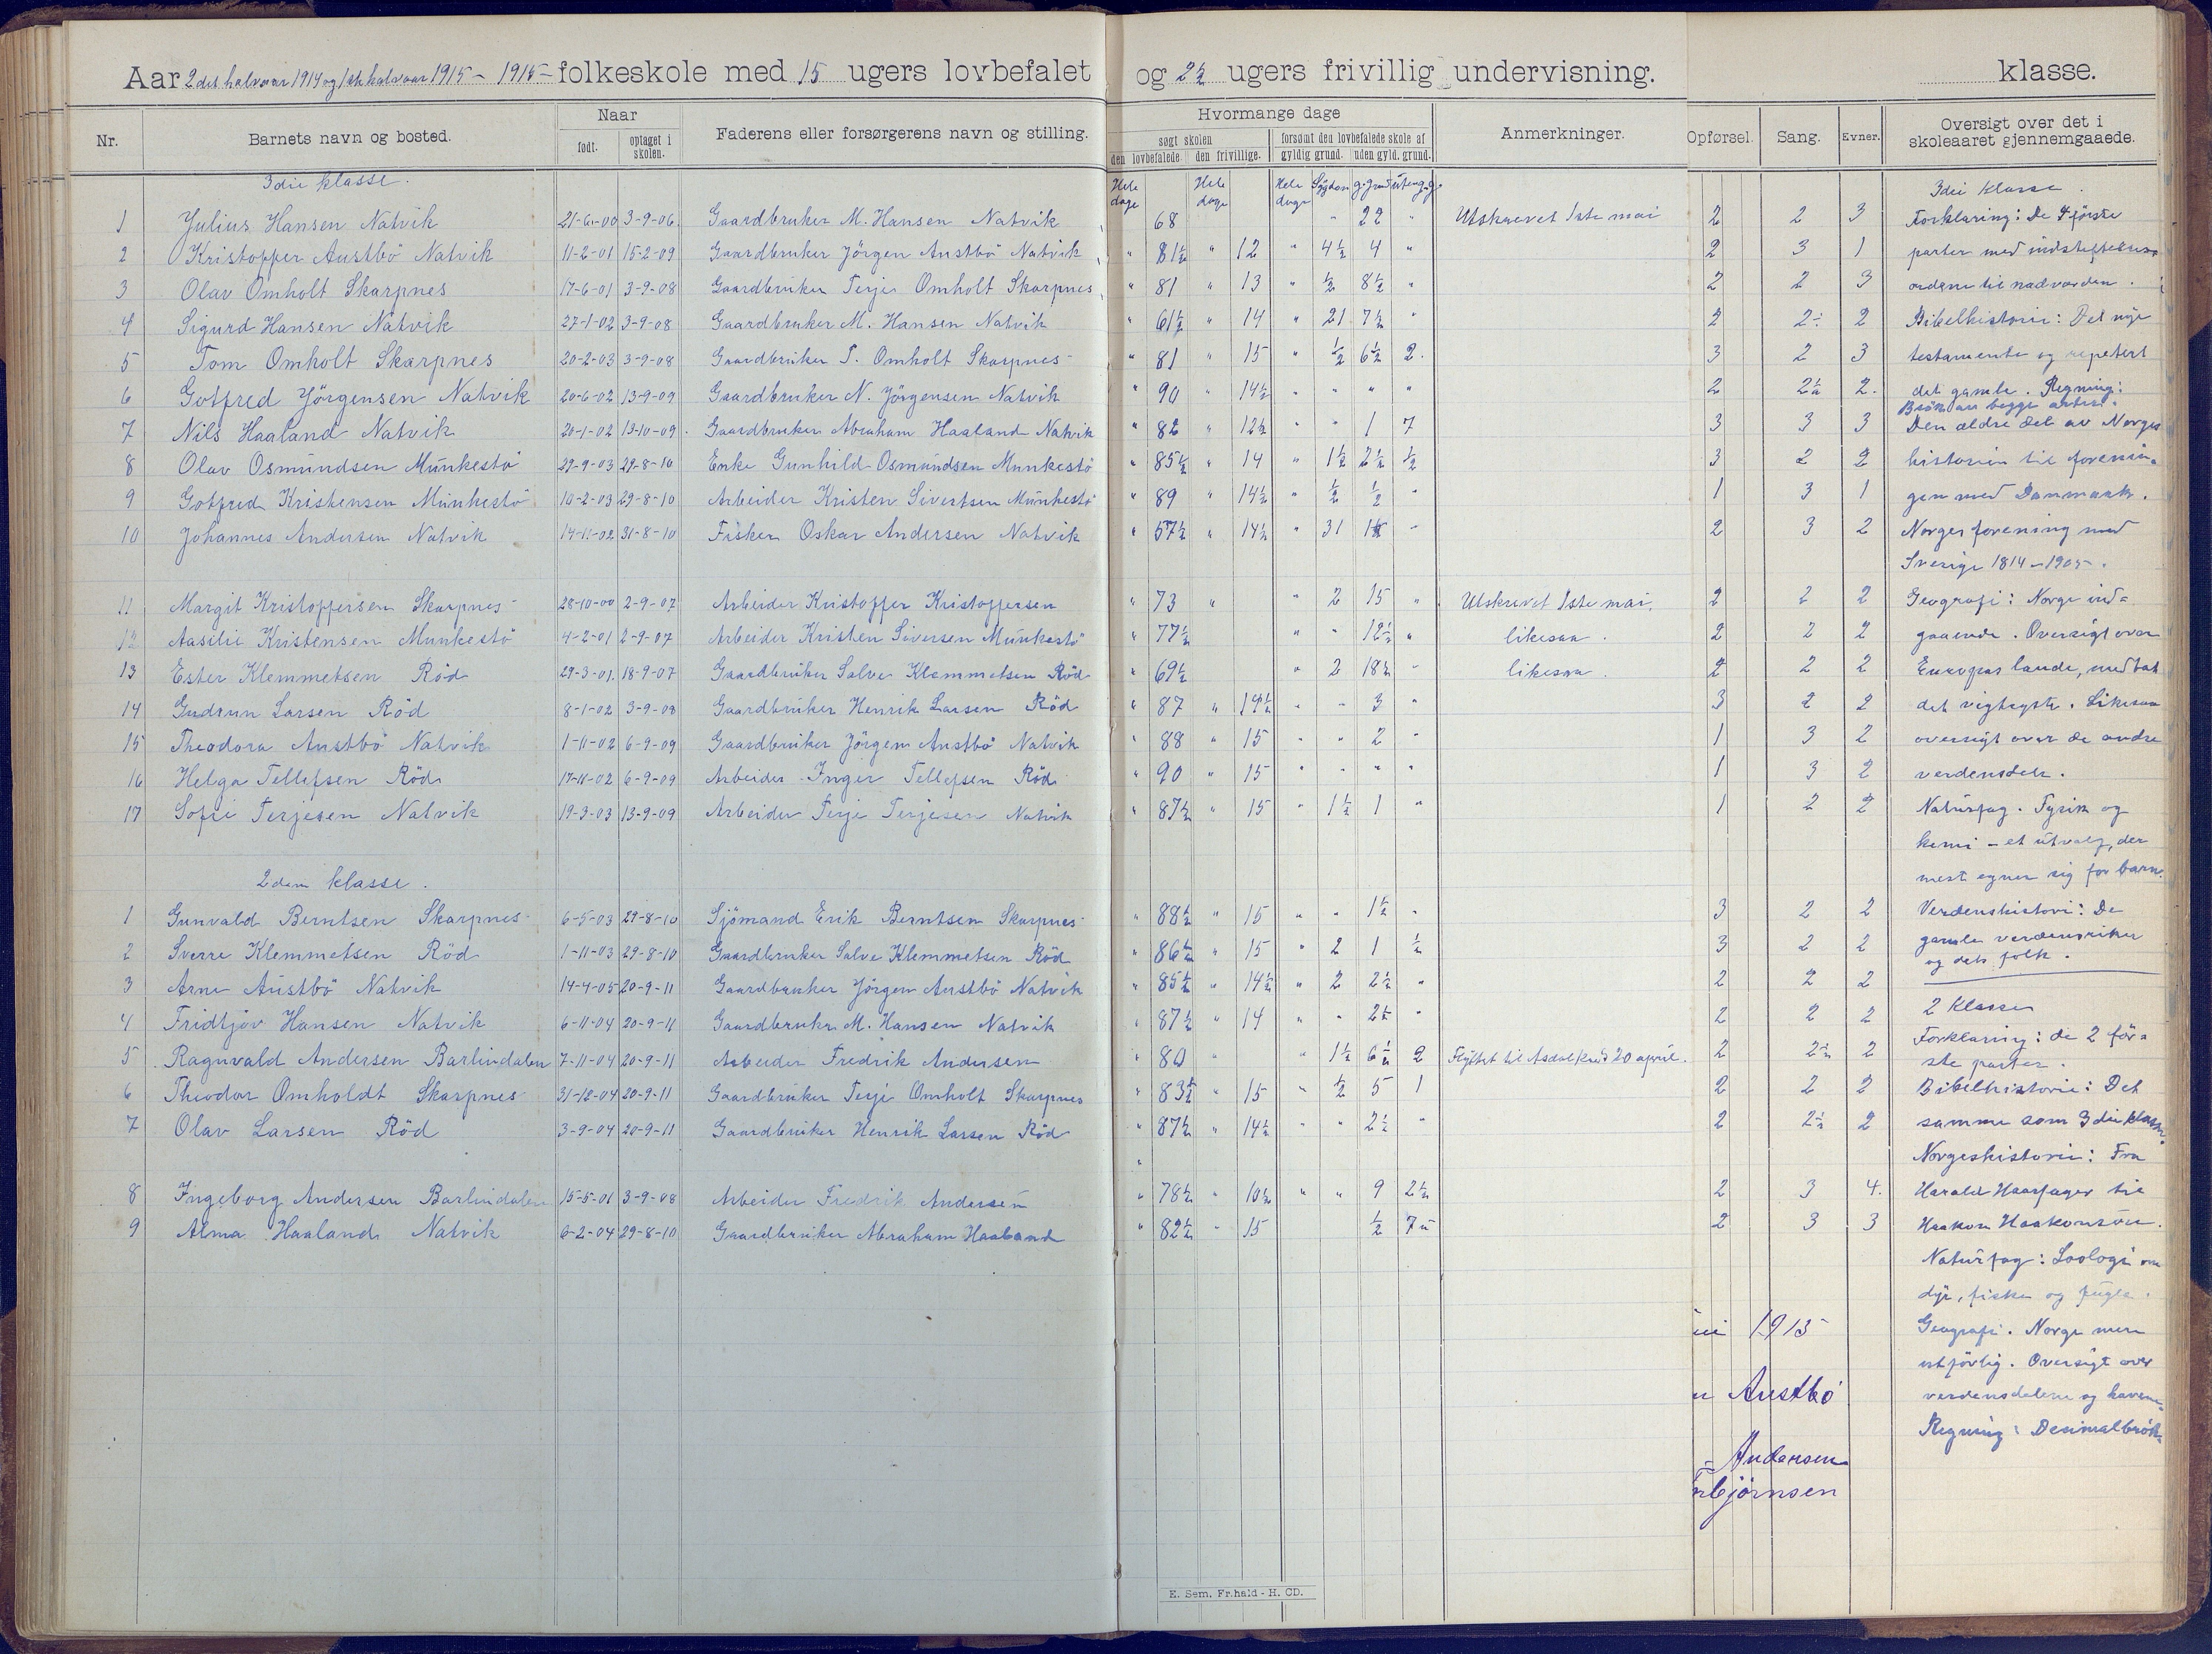 Aar 2det halvaar 1914 og 1ste halvaar 1915 - 1915 - folkeskole med 15 ugers lovbefalet og 2½ ugers frivillig undervisning. klasse.
Nr. Barnets navn og bosted. Naar født. optaget i skolen. Faderens eller forsørgerens navn og stilling. Hvormange dage søgt skolen den lovbefalede. den frivillige. forsømt den lovbefalede skole af gyldig grund. uden gyld. grund. Anmerkninger. Opførsel. Sang. Evner. Oversigt over det i skoleaaret gjennemgaaede.
3die klasse. Hele dage Hele dage Hele dage Sygdom
1 Julius Hansen Natvik 21-6-00 3-9-06 Gaardbruker M. Hansen Natvik 68 " 22 " Utskrevet 1ste mai 2 2 3
2 Kristoffer Austbö Natvik 11-2-01 15-2-09 Gaardbruker Jörgen Austbö Natvik " 81½ " 12 " 4½ 4 " 2 3 1
3 Olav Omholt Skarpnes 17-6-01 3-9-08 Gaardbruker Terje Omholt Skarpnes " 81 " 13 " ½ 8½ " 2 2 3
4 Sigurd Hansen Natvik 27-1-02 3-9-08 Gaardbruker M. Hansen Natvik " 61½ " 14 " 21 7½ " 2 2 2
5 Tom Omholt Skarpnes 20-2-03 3-9-08 Gaardbruker T. Omholt Skarpnes " 81 " 15 " ½ 6½ 2 3 2 3
6 Gotfred Jörgensen Natvik 20-6-02 13-9-09 Gaardbruker N. Jörgensen Natvik " 90 " 14½ " " " " 2 2½ 2
7 Nils Haaland Natvik 20-1-02 13-10-09 Gaardbruker Abraham Haaland Natvik " 82 " 12½ " " 1 7 3 3 3
8 Olav Osmundsen Munkestö 29-9-03 29-8-10 Enke Gunhild Osmundsen Munkestö " 85½ " 14 " 1½ 2½ ½ 3 2 2
9 Gotfred Kristensen Munkestö 10-2-03 29-8-10 Arbeider Kristen Sivertsen Munkestö " 89 " 14½ " ½ ½ " 1 3 1
10 Johannes Andersen Natvik 14-11-02 31-8-10 Fisker Oskar Andersen Natvik " 57½ " 14½ " 31 " 2 3 2
11 Margit Kristoffersen Skarpnes 28-10-00 2-9-07 Arbeider Kristoffer Kristoffersen " 73 " " 2 15 " Utskrevet 1ste mai. 2 2 2
12 Aasilie Kristensen Munkestö 4-2-01 2-9-07 Arbeider Kristen Siversen Munkestö " 77½ " " 12½ " likesaa. 2 2 2
13 Ester Klemmetsen Röd 29-3-01 18-9-07 Gaardbruker Salve Klemmetsen Röd " 69½ " 2 18½ " likesaa. 2 2 2
14 Gudrun Larsen Röd 8-1-02 3-9-08 Gaardbruker Henrik Larsen Röd " 87 " 14½ " " 3 " 3 2 2
15 Theodora Austbö Natvik 1-11-02 6-9-09 Gaardbruker Jörgen Austbö Natvik " 88 " 15 " " 2 " 1 3 2
16 Helga Tellefsen Röd 17-11-02 6-9-09 Arbeider Inger Tellefsen Röd " 90 " 15 " " " " 1 3 2
17 Sofie Terjesen Natvik 19-3-03 13-9-09 Arbeider Terje Terjesen Natvik " 87½ " 15 " 1½ 1 " 1 2 2
2den klasse.
1 Gunvald Berntsen Skarpnes 6-5-03 29-8-10 Sjömand Erik Berntsen Skarpnes " 88½ " 15 " " 1½ " 3 2 2
2 Sverre Klemmetsen Röd 1-11-03 29-8-10 Gaardbruker Salve Klemmetsen Röd " 86½ " 15 " 2 1 ½ 3 2 2
3 Arne Austbö Natvik 14-4-05 20-9-11 Gaardbruker Jörgen Austbö Natvik " 85½ " 14½ " 2 2½ " 2 2 2
4 Fridtjov Hansen Natvik 6-11-04 20-9-11 Gaardbruker M. Hansen Natvik " 87½ " 14 " " 2½ " 2 2 2
5 Ragnvald Andersen Barlindalen 7-11-04 20-9-11 Arbeider Fredrik Andersen " 80 " " 1½ 6½ 2 Flyttet til Asdal kreds 20 april. 2 2½ 2
6 Theodor Omholdt Skarpnes 31-12-04 20-9-11 Gaardbruker Terje Omholt Skarpnes " 83½ " 15 " ½ 5 1 2 2 2
7 Olav Larsen Röd 3-9-04 20-9-11 Gaardbruker Henrik Larsen Röd " 87½ " 14½ " " 2½ " 2 2½ 2
8 Ingeborg Andersen Barlindalen 15-5-01 3-9-08 Arbeider Fredrik Andersen " 78½ " 10½ " " 9 2½ 2 3 4.
9 Alma Haaland Natvik 6-2-04 29-8-10 Gaardbruker Abraham Haaland " 82½ " 15 ½ 7 2 3 3
3die Klasse.
Forklaring: De 4 förste
parter med indstiftelses-
ordene til nadverden.
Bibelhistorie: Det nye
testamente og repetert
det gamle. Regning:
Brök av begge arter.
Den ældre del av Norges
historien til forenin-
gen med Danmark.
Norges forening med
Sverige 1814-1905.
Geografi: Norge ind-
gaaende. Oversigt over
Europas lande, medtat
det vigtigste. Likesaa
oversigt over de andre
verdensdele.
Naturfag. Fysik og
kemi - et utvalg, der
mest egner sig for barn.
Verdenshistorie: De
gamle verdensriker
og dets folk.
2 Klasse
Forklaring: de 2 för-
ste parter.
Bibelhistorie: Det
samme som 3die klasse.
Norgeshistorie: Fra
Harald Haarfager til
Haakon Haakonsön.
Naturfag: Zoologi om
dyr, fiske og fugle.
Geografi. Norge mere
utförlig. Oversigt over
verdensdelene og havene.
Regning: Desimalbrök.
1915
Austbö
Andersen
björnsen
E. Sem. Fr.hald - H. CD.